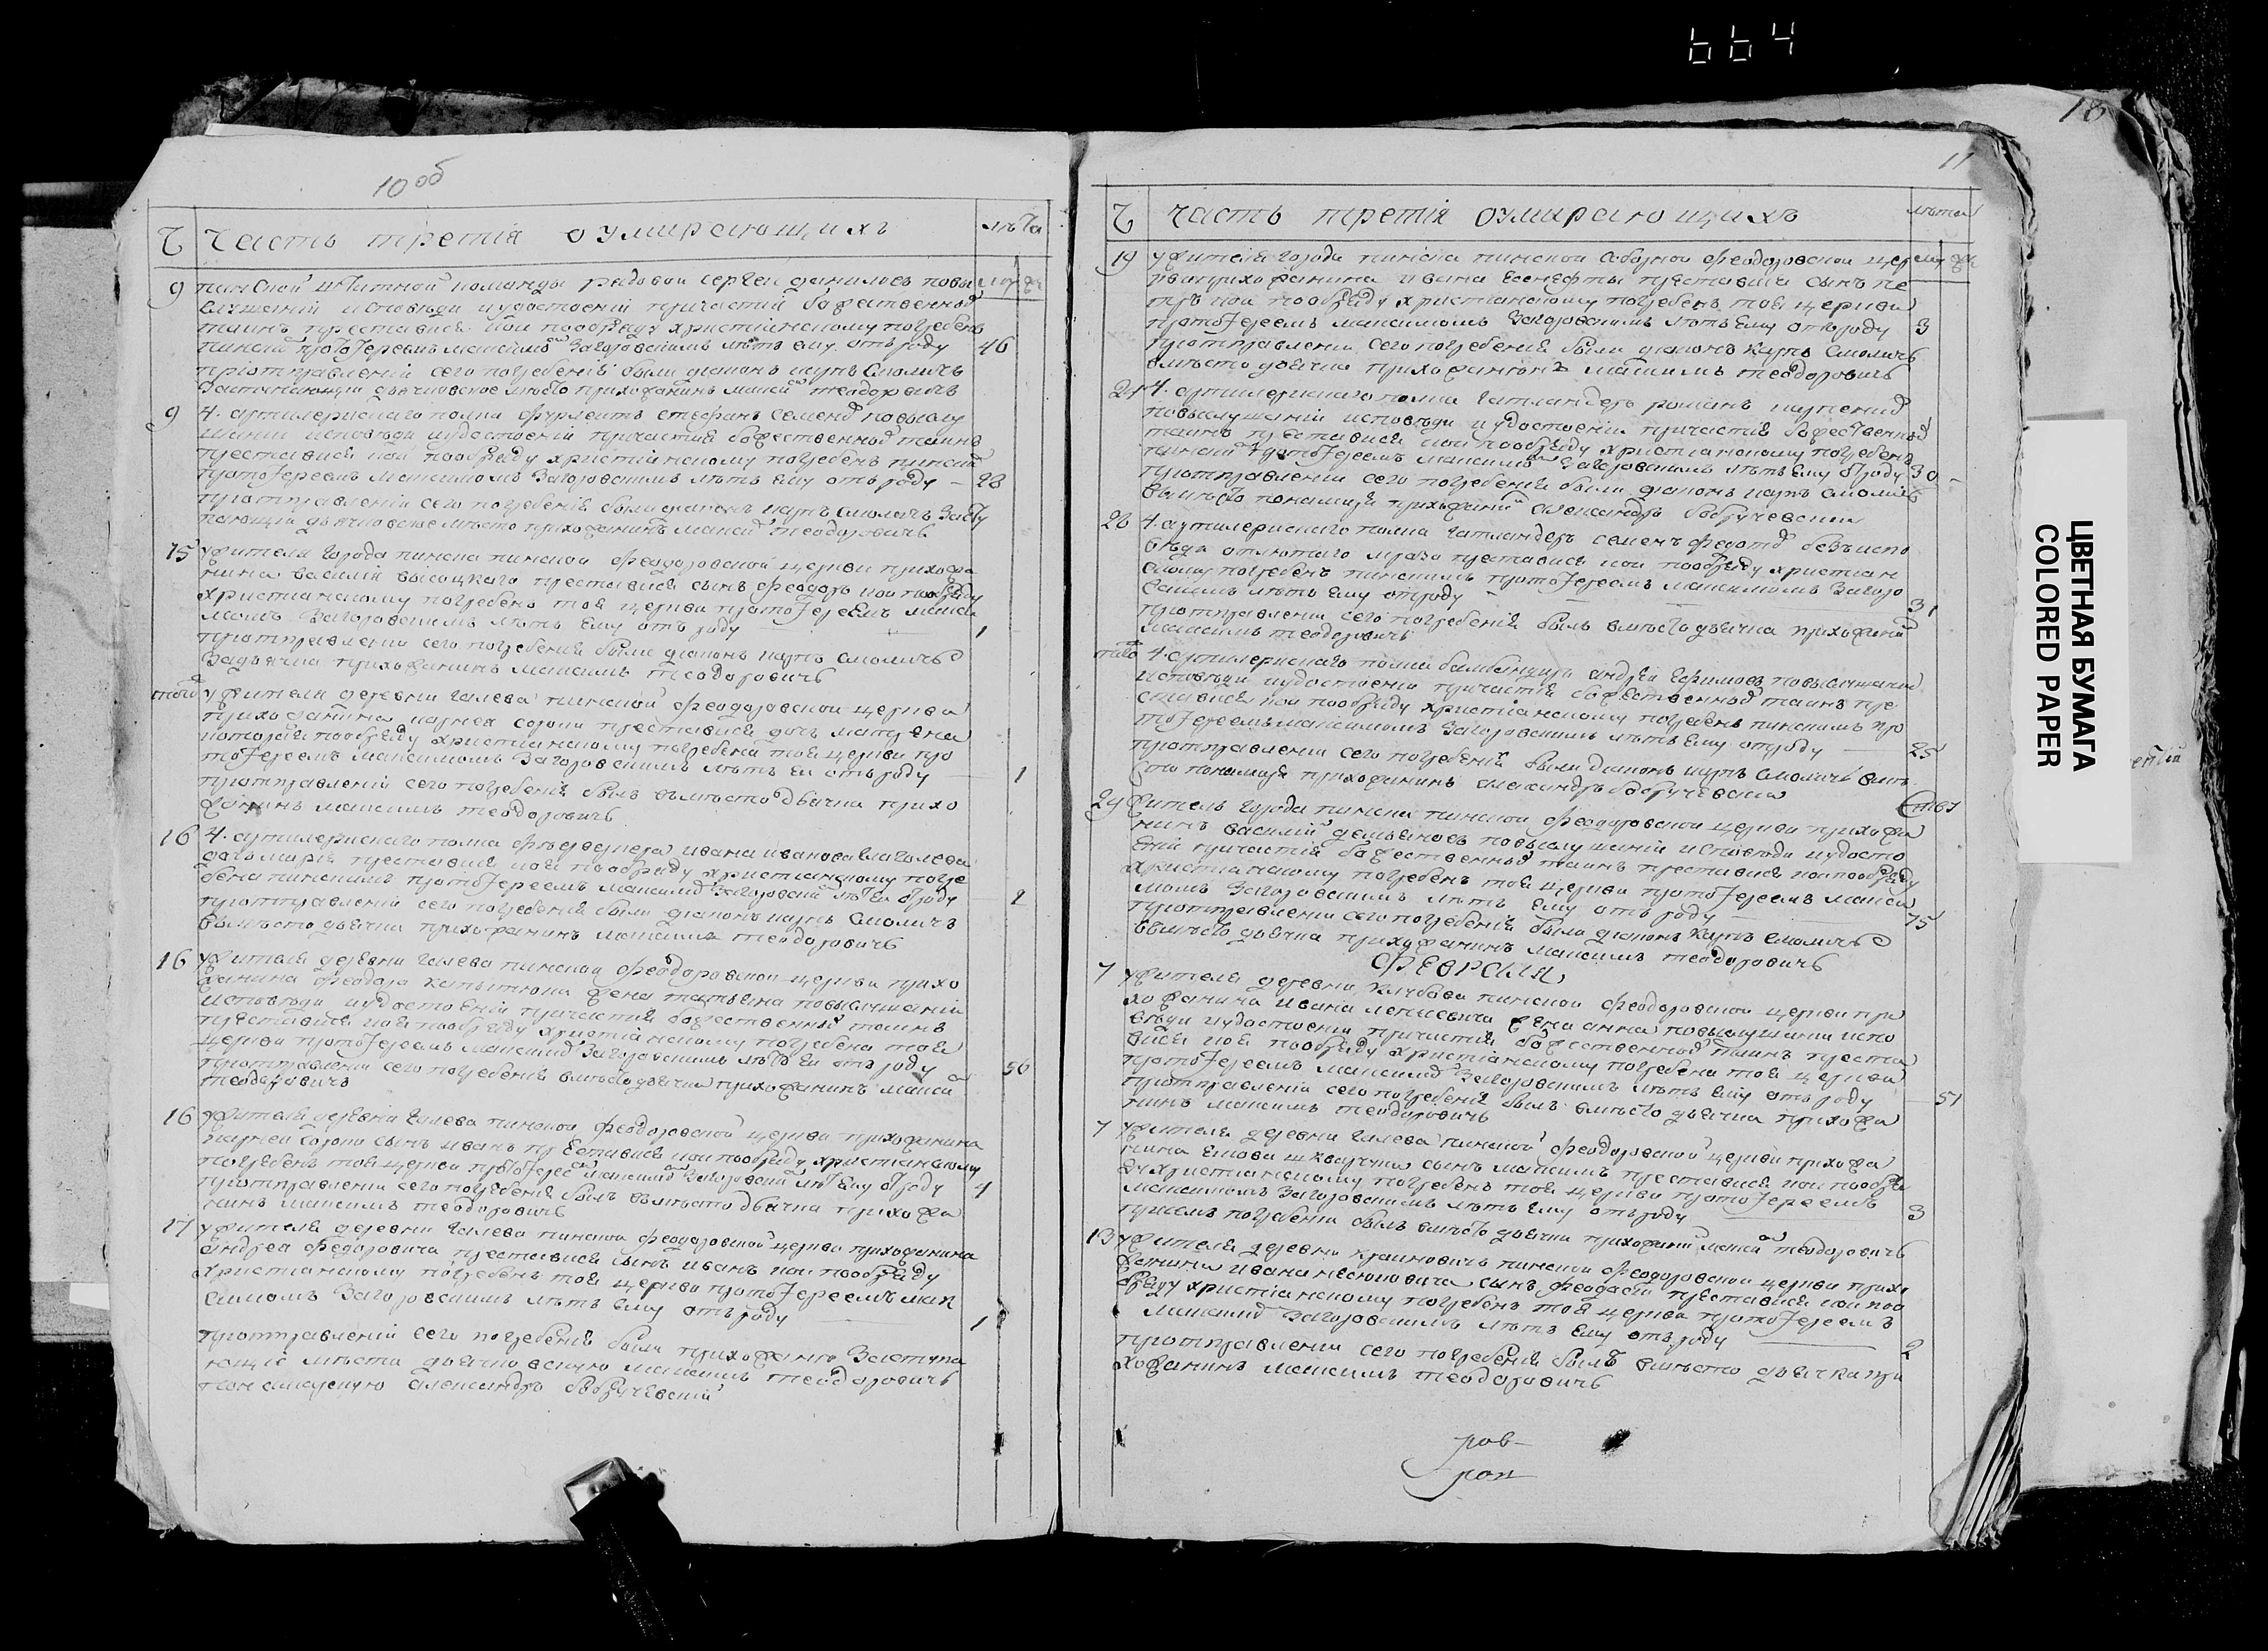 664
18
10 об
Ч Часть третія оумирающихъ лѣта
9 пинской штатной команды рядовой сергеи даниловъ повы муж
слушаніи исповѣди иудостоеніи причастия божественнои
таинъ преставися кои пообряду христианскому погребенъ
пински протоіереемъ максимом Загоровскимъ лѣтъ ему отъ роду 46
приотправлении сего погребения были диаконъ карпъ Смоличъ
Заступающии дьячковское мѣсто прихожанинъ максим теодоровичъ
9 4. артилериского полка стефанъ повыслу
шании исповѣди иудостоеніи причастия божественнои таинъ
преставися кои пообряду христианскому погребенъ пински
протоіереемъ максимомъ Загоровскимъ лѣтъ ему отъ роду – 28
приотправлении сего погребения были диаконъ карпъ Смоличъ Засту
пающии дьячковское мѣсто прихожанинъ максим теодоровичъ
15 жителя города пинска пинской феодоровской церкви прихожа
нина василия высоцкаго преставися сынъ феодоръ кои пообряду
христианскому погребенъ той церкви протоіереемъ макси
момъ Загоровскимъ лѣтъ ему отъ роду 1
приотправлении сего погребения были диаконъ карпъ смоличъ
Задьячка прихожанинъ максимъ теодоровичъ
жителя деревни галева пинской феодоровской церкви
прихожанина карнея сороки преставися дочь матрена
которая пообряду христианскому погребена той церкви про
тоіереемъ максимомъ Загоровскимъ лѣтъ ей отъ роду 1
приотправлении сего погребения былъ вмѣсто дьячка прихо
жанинъ максимъ теодоровичъ
16 4. артилериского полка ивана иванова
дочь мария преставися коя пообряду христианскому погре
бена пинскимъ протоіереемъ максимом Загоровским лѣт ей отроду 2
приотправлении сего погребения были диаконъ карпъ Смоличъ
вмѣсто дьячка прихожанинъ максимъ теодоровичъ
16 жителя деревни галева пинской феодоровской церкви прихо
жанина феодора жена татьяна повыслушании
исповѣди иудостоеніи причастия божественныи таинъ
преставися коя пообряду христианскому погребена той
церкви протоіереемъ максимом Загоровскимъ лѣтъ ей отъ роду 56
приотправлении сего погребения вмѣсто дьячка прихожанинъ макси
теодоровичъ
16 жителя деревни галева пинской феодоровской церкви прихожанина
карнея Сороки сынъ иванъ преставися кои пообряду христианскому
погребенъ той церкви протоіерее максимом Загоровским лѣт ему отроду 4
приотправлении сего погребения былъ вмѣсто дьячка прихожа
нинъ максимъ теодоровичъ
17 жителя деревни галева пинской феодоровской церкви прихожанина
андрея федоровича преставися сынъ иванъ кои пообряду
христианскому погребенъ той церкви протоіереемъ мак
симомъ Загоровскимъ лѣтъ ему отъ роду 1
приотправлении сего погребения были прихожане Заступа
ющие мѣста дьячковскую максимъ теодоровичъ
пономарскую александръ бобручевский
11
Ч часть третія оумирающихъ лѣта
19 жителя города пинска пинской соборной феодоровской цер
кви прихожанина ивана преставися сынъ пе
тръ кои пообряду христианскому погребенъ той церкви
протоіереемъ максимомъ Загоровскимъ лѣтъ ему отъроду 3
приотправлении сего погребения были диаконъ карпъ смоличъ
вмѣсто дьячка прихожанинъ максимъ теодоровичъ
4. артилериского полка гантлангеръ романъ
повыслушании исповѣди иудостоении причастия божественныи
таинъ преставися кои пообряду христианскому погребенъ
пински протоіереемъ максимом Загоровскимъ лѣтъ ему отроду 30
приотправлении сего погребения были диаконъ карпъ смоличъ
вмѣсто понамаря прихожанин александръ бобручевскии
4. артилериского полка гантлангеръ семенъ безъ испо
вѣди отлютаго мраза преставися кои пообряду христиан
скому погребенъ пинскимъ протоіереемъ максимомъ Загоро
вскимъ лѣтъ ему отроду 31
приотправлении сего погребения былъ вмѣсто дьячка прихожанин
максимъ теодоровичъ
4. артилериского полка андреи ефимовъ повыслушании
исповѣди иудостоении причастия божественнои таинъ пре
ставися кои пообряду христианскому погребенъ пинскимъ про
тоіереемъ максимомъ Загоровскимъ лѣтъ ему отроду 25
приотправлении сего погребения были диаконъ карпъ смоличъ вмѣ
сто понамаря прихожанинъ александръ бобручевски
29 житель города пинска пинской феодоровской церкви прихожа
нинъ василий повыслушаніи исповѣди иудосто
еніи причастия божественныи таинъ преставися кои пообряду
христианскому погребенъ той церкви протоіереемъ макси
момъ Загоровскимъ лѣтъ ему отъ роду 75
приотправлении сего погребения были диаконъ карпъ смоличъ
вмѣсто дьячка прихожанинъ максимъ теодоровичъ
февраля
7 жителя деревни пинской феодоровской церкви при
хожанина ивана жена анна повыслушании испо
вѣди иудостоении причастия божественныи таинъ преста
вися коя пообряду христианскому погребена той церкви
протоіереемъ максимом Загоровскимъ лѣтъ ему отъ роду 51
приотправлении сего погребения былъ вмѣсто дьячка прихожа
нинъ максимъ теодоровичъ
7 жителя деревни галева пинской феодоровской церкви прихожа
нина сынъ максимъ преставися кои пообря
ду христианскому погребенъ той церкви протоіереемъ
максимомъ Загоровскимъ лѣтъ ему отъ роду 3
присемъ погребении былъ вмѣсто дьячка прихожанин максим теодоровичъ
13 жителя деревни пинской феодоровской церкви прихо
жанина ивана сынъ феодосий преставися кои поо
бряду христианскому погребенъ той церкви протоіереемъ
максимом Загоровскимъ лѣтъ ему отъ роду 2
приотправлении сего погребения былъ вмѣсто дьячка при
хожанинъ максимъ теодоровичъ
ЦВЕТНАЯ БУМАГА
COLORED PAPER